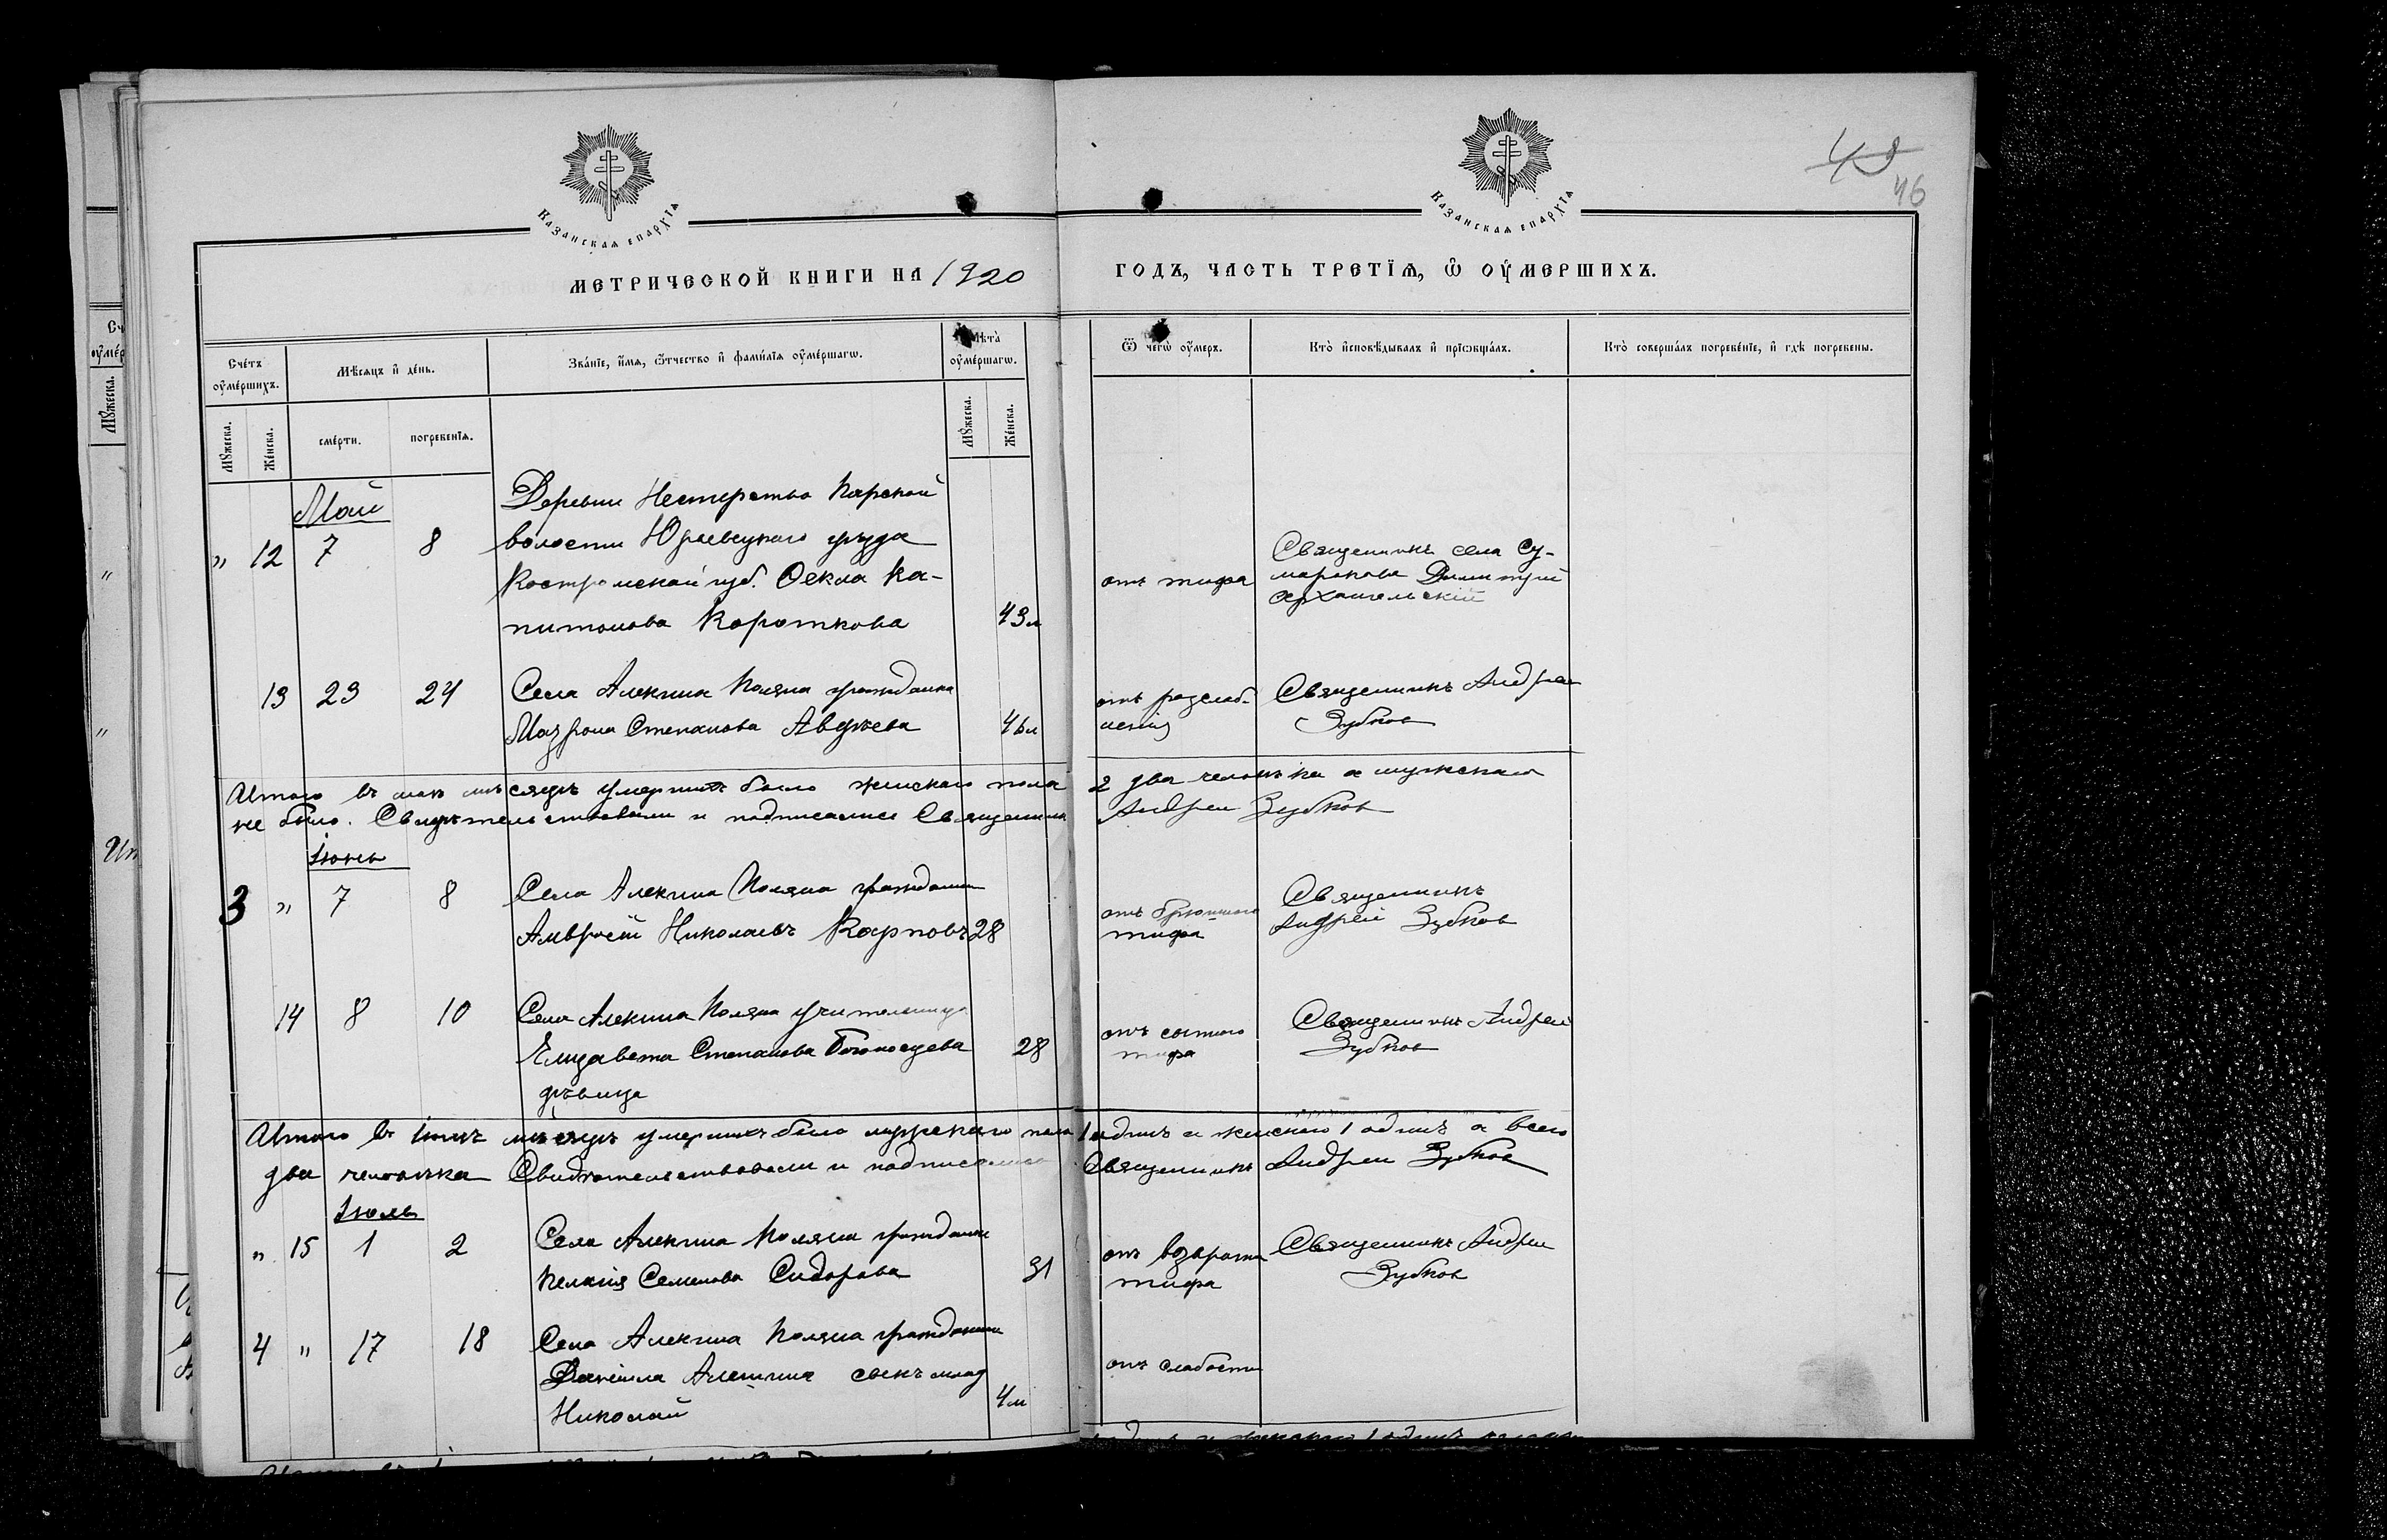 48
46
Казанскаѧ епархїѧ
Казанскаѧ епархїѧ
МЕТРИЧЕСКОЙ КНИГИ НА 1920
ГОДЪ, ЧАСТЬ ТРЕТЇѦ, Ѽ ОУМЕРШИХЪ.
Счетъ оумершихъ.
Мѣсяцъ и день.
Званїе, имѧ, ѿчество и фамилїѧ оумершагѡ.
Лѣта оумершагѡ.
Ѿ чегѡ оумеръ.
Кто исповѣдывалъ и прїѡбщалъ.
Кто совершалъ погребенїе, и гдѣ погребены.
Мужеска.
Женска.
смерти.
погребенїѧ.
Мужеска.
Женска.
Май
Деревни Карской
" 12 7 8 волости Юрьевецкаго уѣзда
Костромской губ. Фекла Ка-
питонова Короткова 43 л
отъ тифа
Священникъ села Су-
марокова Димитрий
Архангельскій
13 23 24 Села Алекина Поляна гражданка
Мавра Степанова Авдѣева 46 л
отъ разслаб-
ленія
Священникъ Андрей
Зубков
Итого въ мае мѣсяцѣ умерших было женскаго пола 2 два человѣка а мужскаго
не было. Свидѣтельствовали и подписались Священник Андрей Зубков
Іюнь
3 " 7 8 Села Алекина Поляна гражданин
Амвросій Николаевъ Карповъ 28
отъ брюшного
тифа
Священникъ
Андрей Зубков
14 8 10 Села Алекина Поляна учительница
Елизавета Степанова 28
дѣвица
отъ сыпного
тифа
Священникъ Андрей
Зубков
Итого въ Іюнѣ мѣсяцѣ умершихъ было мужскаго пола 1 одинъ а женскаго 1 одинъ а всего
два человѣка Свидѣтельствовали и подписались Священникъ Андрей Зубков
Іюль
" 15 1 2 Села Алекина Поляна гражданка
Пелагія Семенова Сидорова 31
отъ возврата
тифа
Священникъ Андрей
Зубков
4 " 17 18 Села Алекина Поляна гражданина
Даніила Алешина сынъ млад
Николай 4 м
отъ слабости